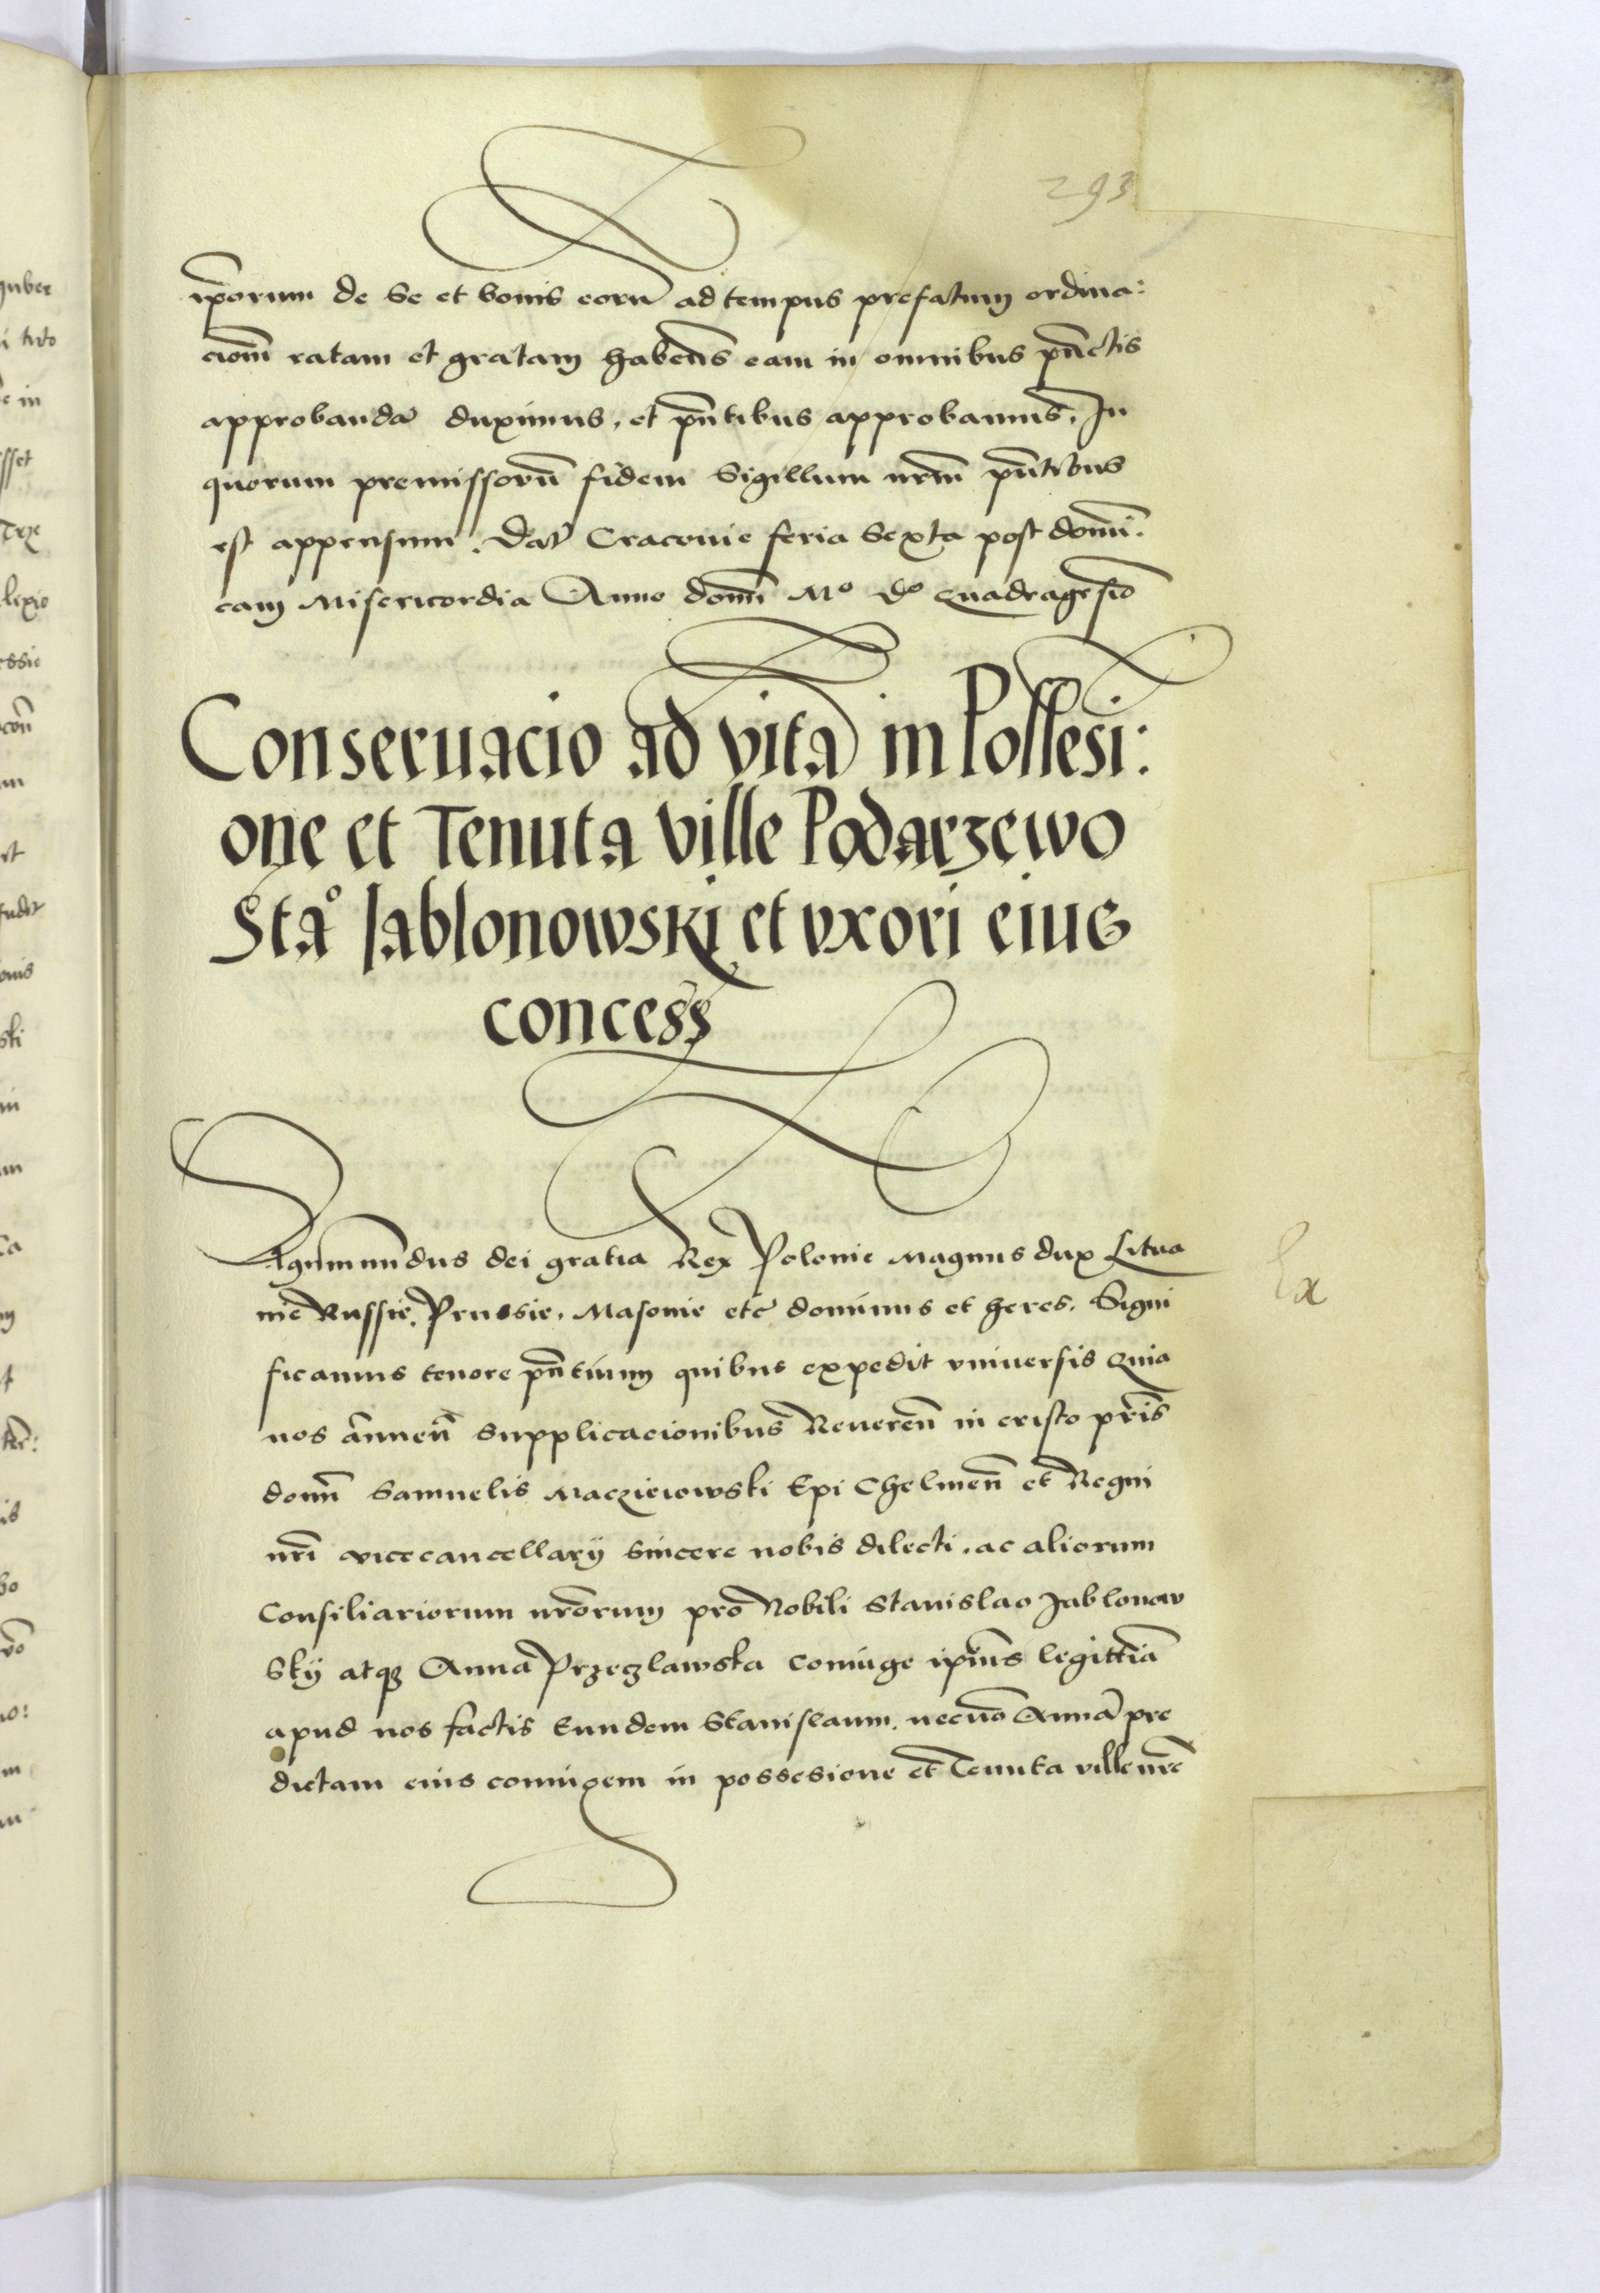 293
ip̄orum de se et bonis eorū ad tempus prefatum ordina:
cionē ratam et gratam habeñs eam in omnibus pūctis
approbandā duximus, et pñtibus approbamus. In
quorum premissorū fidem sigillum nr̄m pñtibus
est appensum. Dat̄ Cracovie feria sexta post domī:
cam Misericordia Anno domī Mº Dº quadragesīo
Conseruacio ad vitā in Possesi:
one et Tenuta ville Podarzewo
Staº Iablonowski et vxori eius
concess
Sigismūndus dei gratia Rex Polonie Magnus dux Litua
nie Russie, Prussie, Masovie etc̄ dominus et heres. Signi
ficamus tenore pñtium quibus expedit vniuersis Quia
nos ānnueñ supplicacionibus Reuereñ in cristo pr̄is
domī Samuelis Maczieiowski Epi Chelmeñ et Regni
nr̄i vicecancellarij sincere nobis dilecti. ac aliorum
Consiliariorum nr̄orum pro Nobili Stanislao Jablonow
skij atqz Anna Przeczlawska coniuge ipīus legittīa
apud nos factis Eundem Stanislaum. necnō Annā pre
dictam eius coniugem in possesione et Tenuta ville nr̄e
Ex